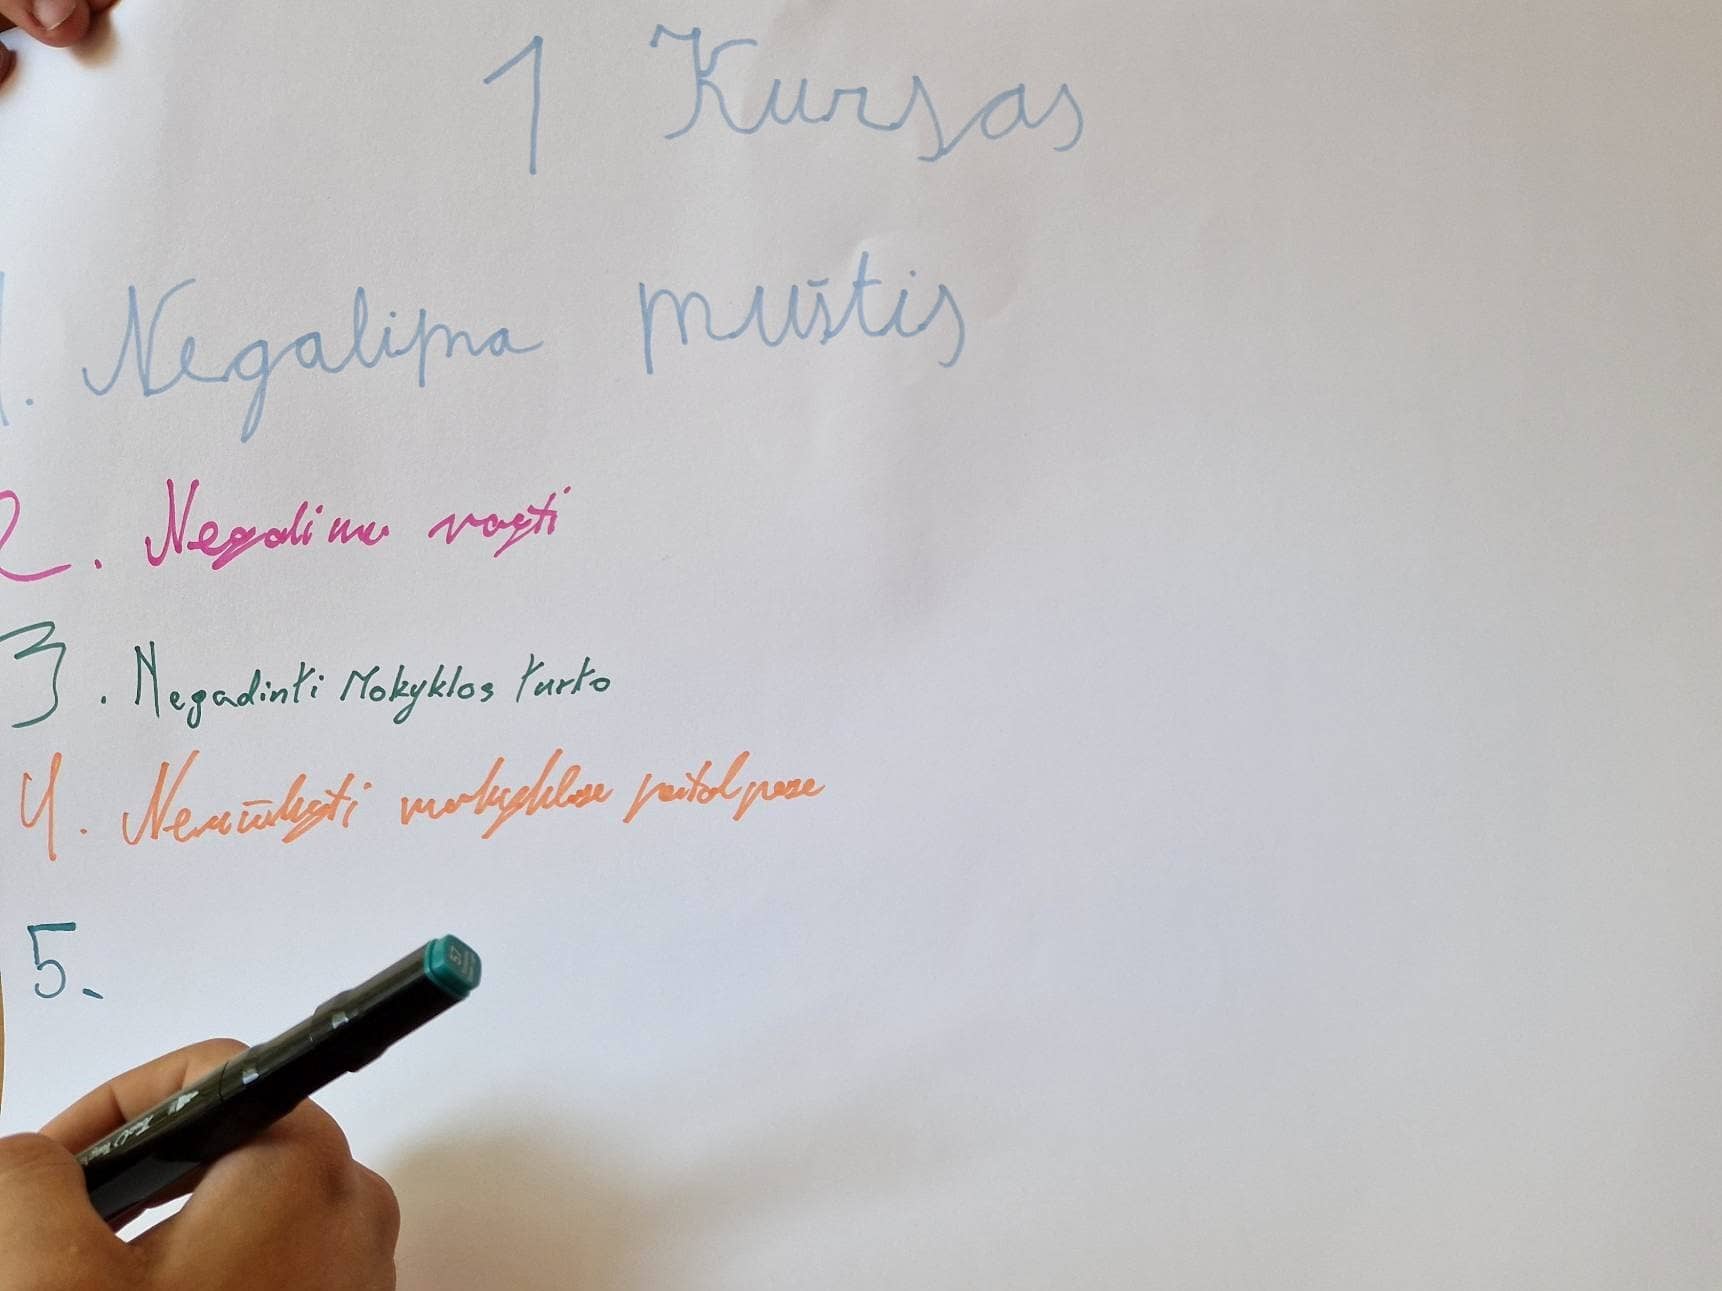 1 Kursas
1. Negalima muštis
2. Negalima vogti
3. Negadinti Mokyklos turto
4. Nerūkyti mokyklose patalpose
5.
57